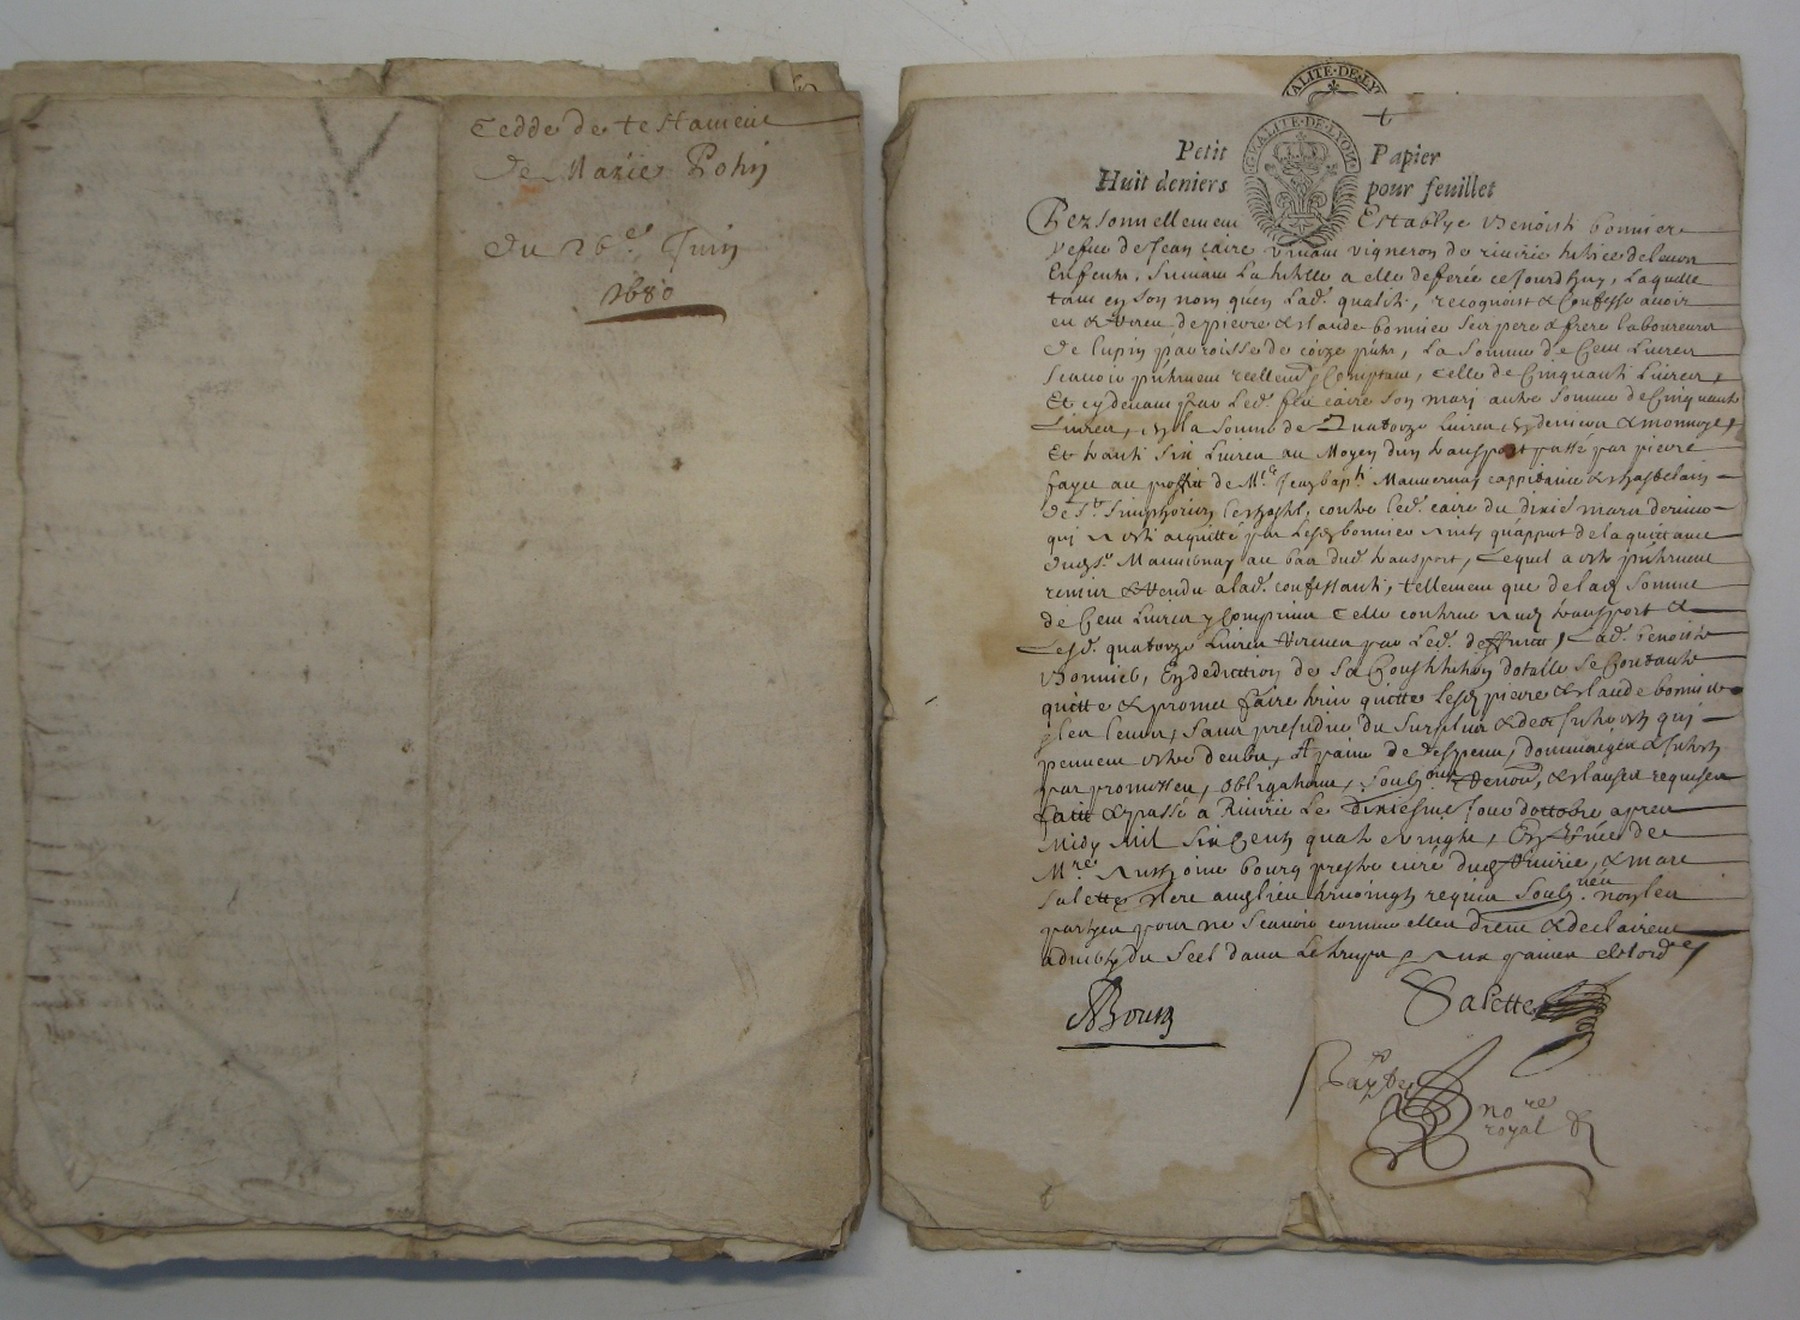 Cedde de testament
de Marie Pohin
du 26e Juin
1680
GNALITE·DE·LYON
ALITE·DE·LY
Petit Papier
Huit deniers pour feuillet
Personnellement Establye Benoisti bonnier
vefue de Jean caire vivant vigneron de riuirie
a elle deferée ce Jourdhuy, Laquelle
tant en son nom quen Lad. qualité, recognoist & Confesse auoir
eu & receu de pierre & claude bonnier ses pere & frere laboureurs
de lupin parroisse de coize pnts, La Somme de Cent Liures
Scauoir pntement reellemt & Comptant, celle de Cinquante Liures,
Et cy deuant par Led. feu caire son mary autre Somme de Cinquante
Liures, la Somme de Quatorze Liures en deniers & monnoye,
Et trante Six Liures au Moyen dun transport passé par pierre
fayer au proffit de Mre Jean bapt. Mauuernay cappitaine & chastelain
de St. Simphorien le chastl, contre led. caire du dixie mars dernier
qui a esté acquitté par Lesd bonnier quappert de la quittance
dud Sr. Mauuernay au bas dud transport, Lequel a esté pntement
remis & rendu a lad. confessante, tellement que de lad Somme
de Cent Liures y Comprins Celle contenue aud transport &
Lesd. quatorze Liures receues par Led. deffunct, Lad. benoiste
Bonnier, En deduction de Sa Constitution dotalle Se Contante
quitte & promet faire tenir quitte Lesd pierre & claude bonnier
& les leurs, Sans prejudice du Surplus & des Interests qui
peuuent estre deubs, A paine de despens, dommaiges & Interests
par promesses, obligations, Soubz. Renon, & clauses requises
fait & passé a Riuirie Le dixiesme Jour doctobre apres
Midy Mil Six Cents quatre vingts, En pnce de
Mre Anthoine bourg prestre curé dud Riuirie, & marc
Salette clerc audlieu tesmoings requis Soubz. non les
partyes pour ne Scauoir comme elles dient & declairent
aduerty du Seel dans Le temps
ABourg
Salette
nore
royal